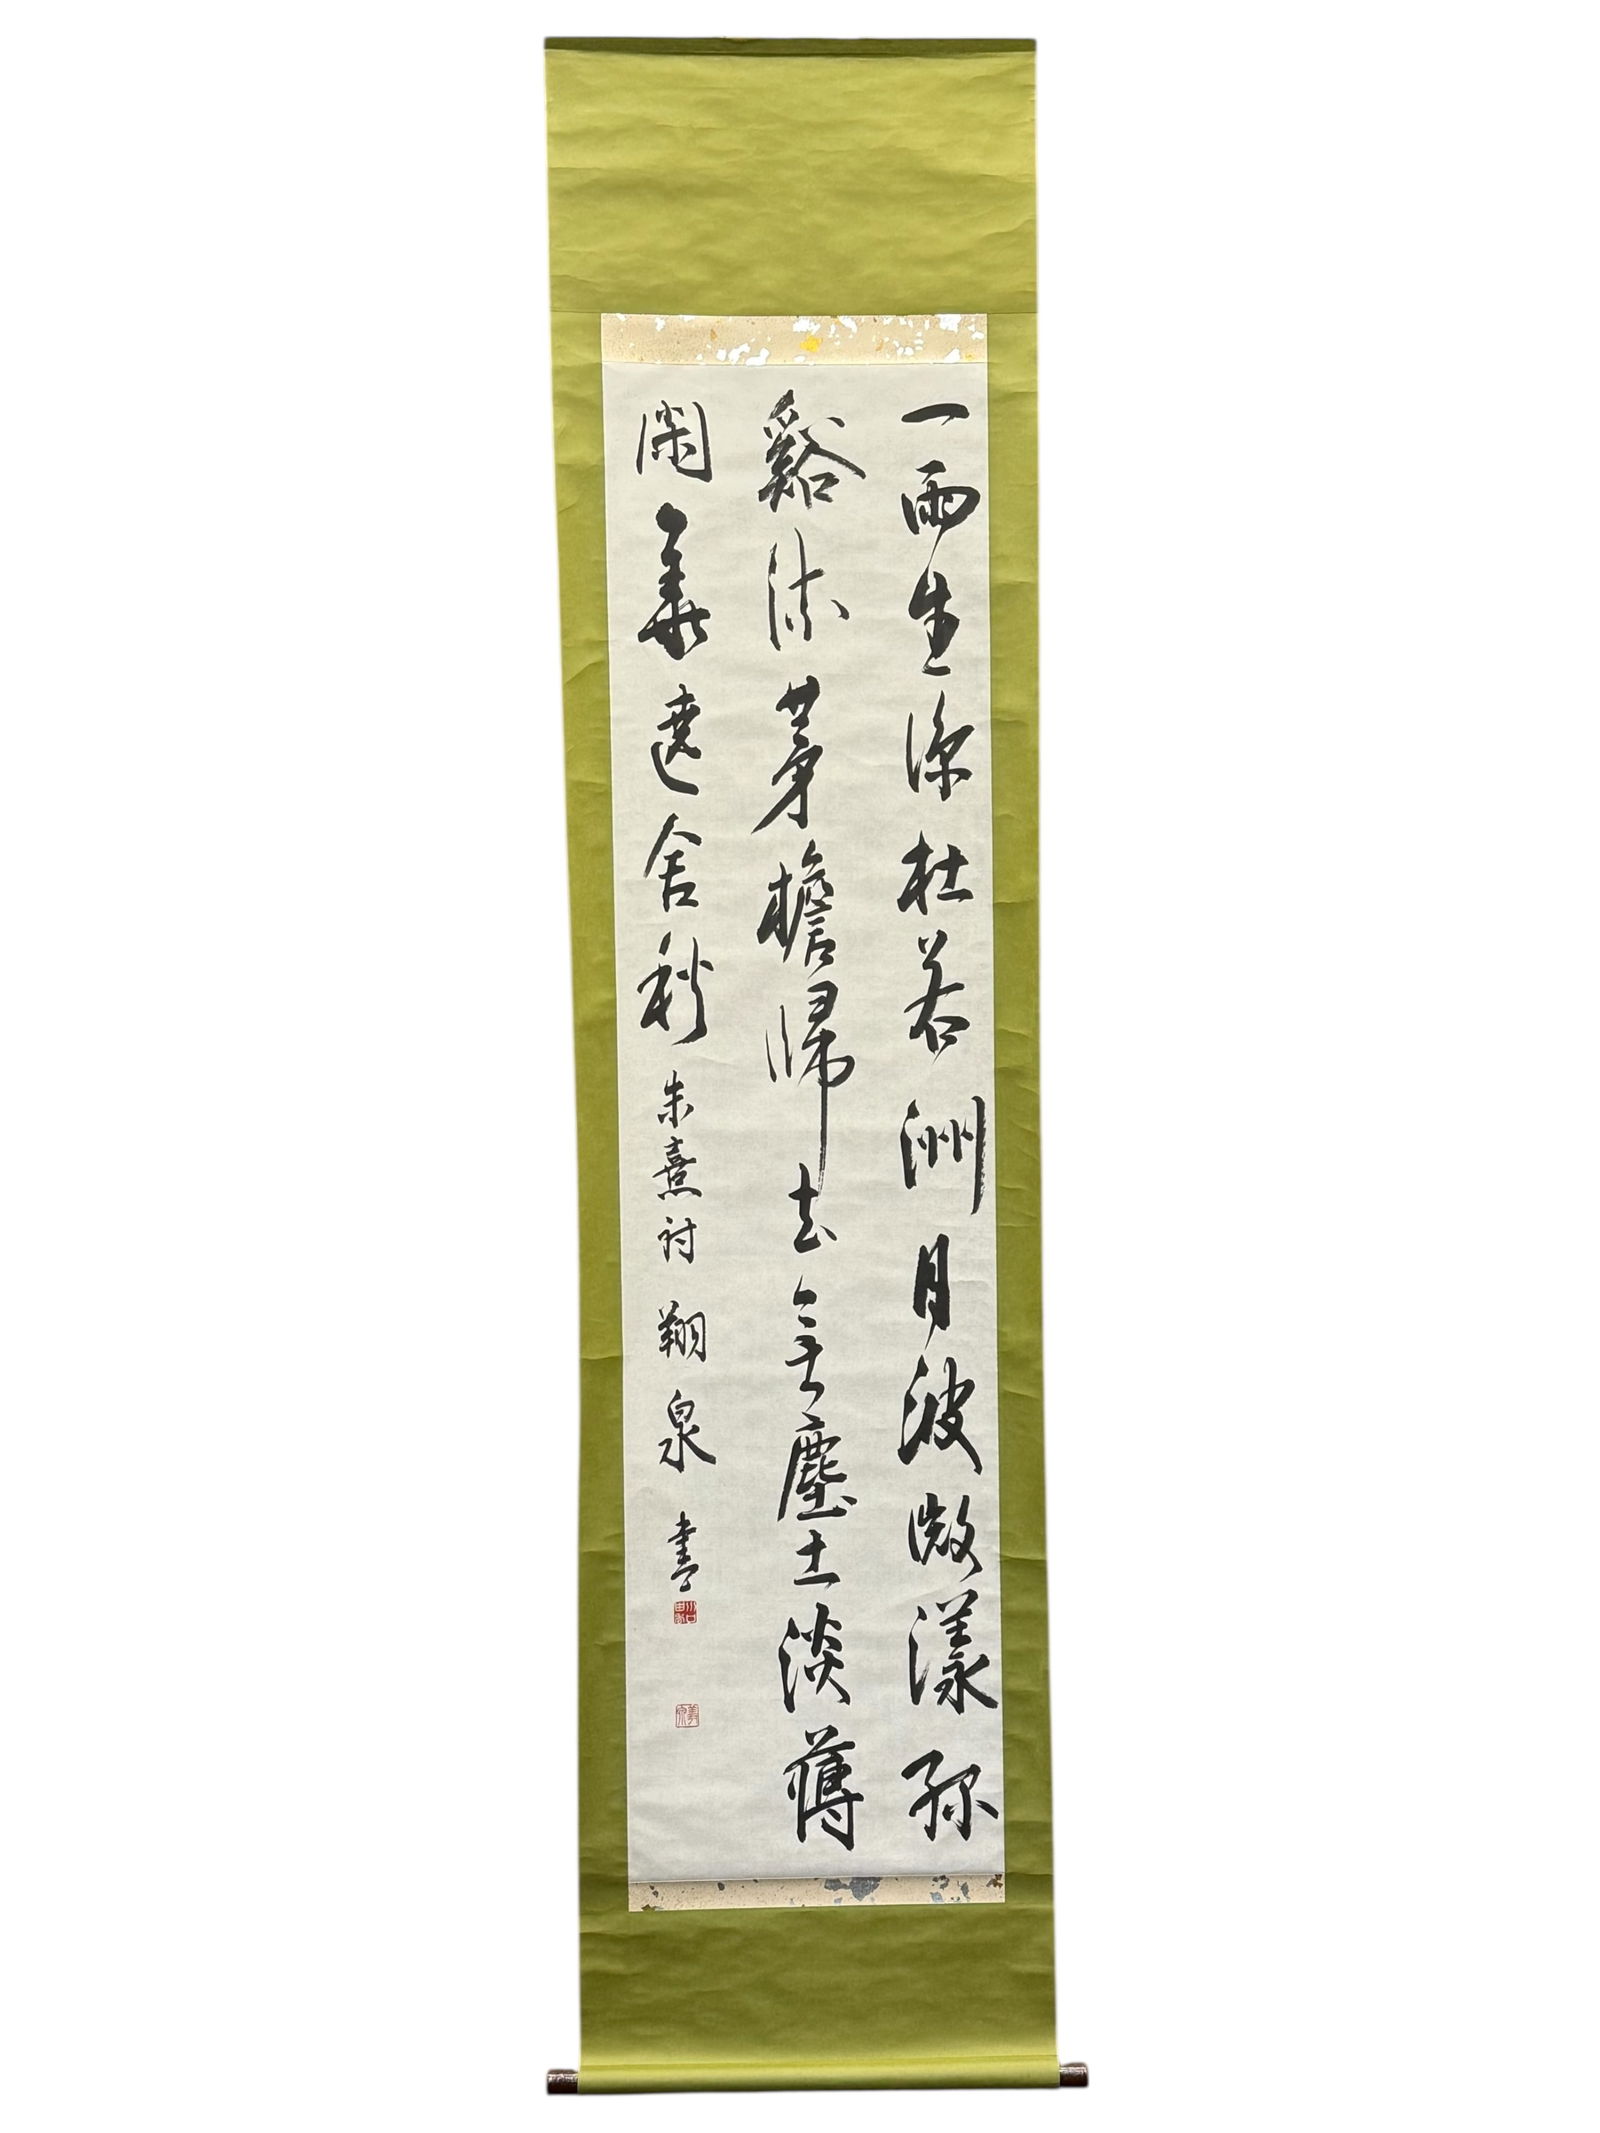 一雨生涼杜若洲月波微漾弥
谿流茅檐歸去無塵土淡薄
閑華遶舍秋 朱熹詩 翔泉書
川口